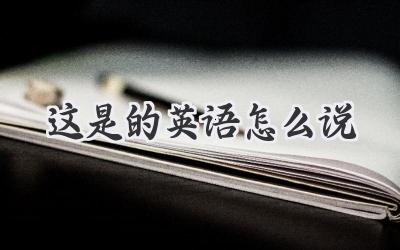 这是的英语怎么说